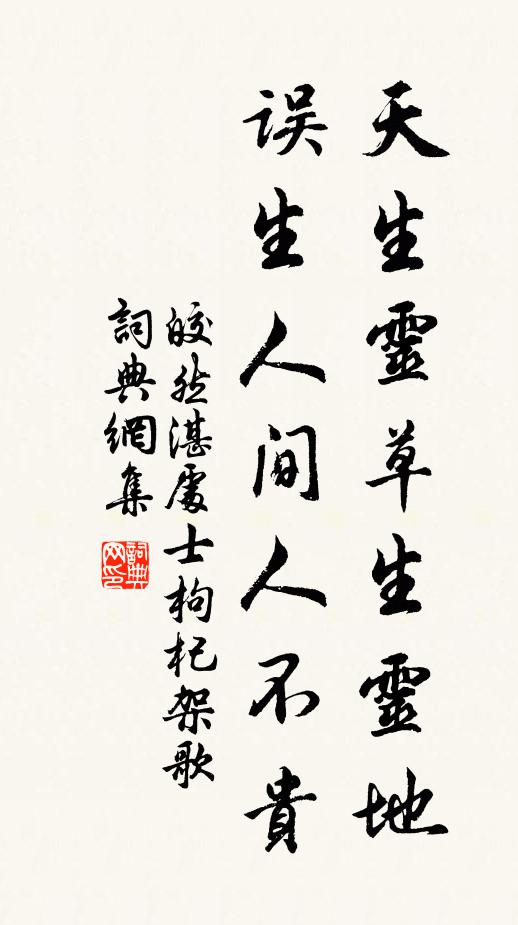 天生靈草生靈地
误生人间人不貴
皎然湛處士枸杞架歌
詞典網集
詞典网印